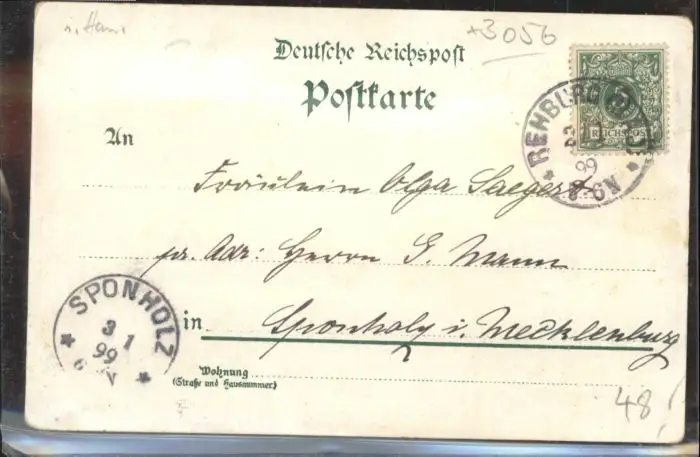 i. Han.
*3056
Deutsche Reichspost
Postkarte
REICHSPOST
REHBURG
99
An
Fräulein Olga Saegert
pr. Adr: Herrn G. Mann
in Sponholz i. Mecklenburg
SPONHOLZ
3 1
99
Wohnung
(Straße und Hausnummer)
48